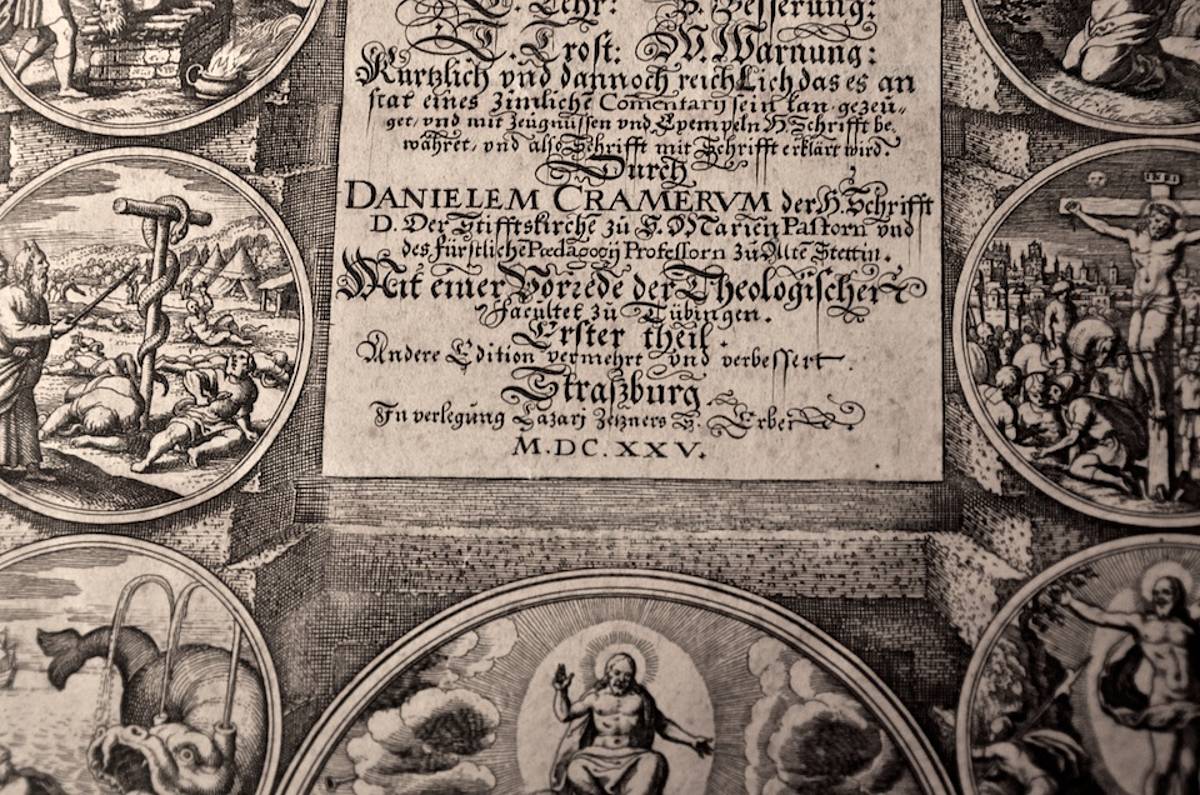 L. Lehr: B. Besserung:
T. Trost: W. Warnung:
Kurtzlich vnd dannoch reichLich das es an
stat eines Zimlichē Comentarij sein kan. gezeu„
get, vnd mit Zeugnussen vnd Exempeln H. Schrifft be.
währet, vnd also Schrifft mit Schrifft erklärt wird.
Durch
DANIELEM CRAMERVM der H. Schrifft
D. Der Stifftskirchē zu S. Mariēn Pastorn vnd
des fürstlichē Pædagogij Professorn zu Altē Stettin.
Mit einer Vorrede der Theologischer
facultet zu Tübingen.
Erster theil.
Andere Edition vermehrt vnd verbessert
Straßburg
In verlegung Lazari Zetzners S. Erben
M.DC.XXV.
INRI